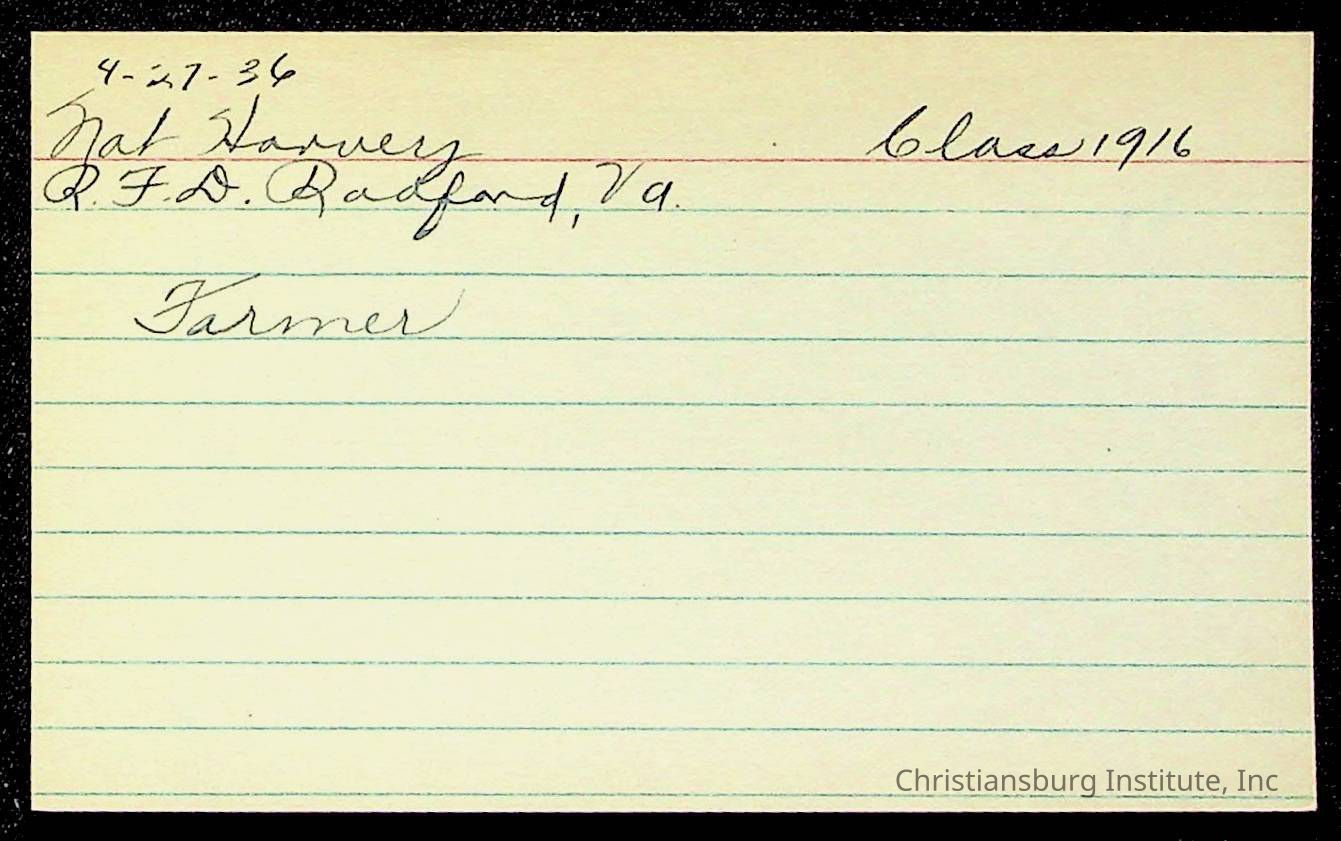 4-27-36
Nat Harvey Class 1916
R.F.D. Radford, Va.
Farmer
Christiansburg Institute, Inc